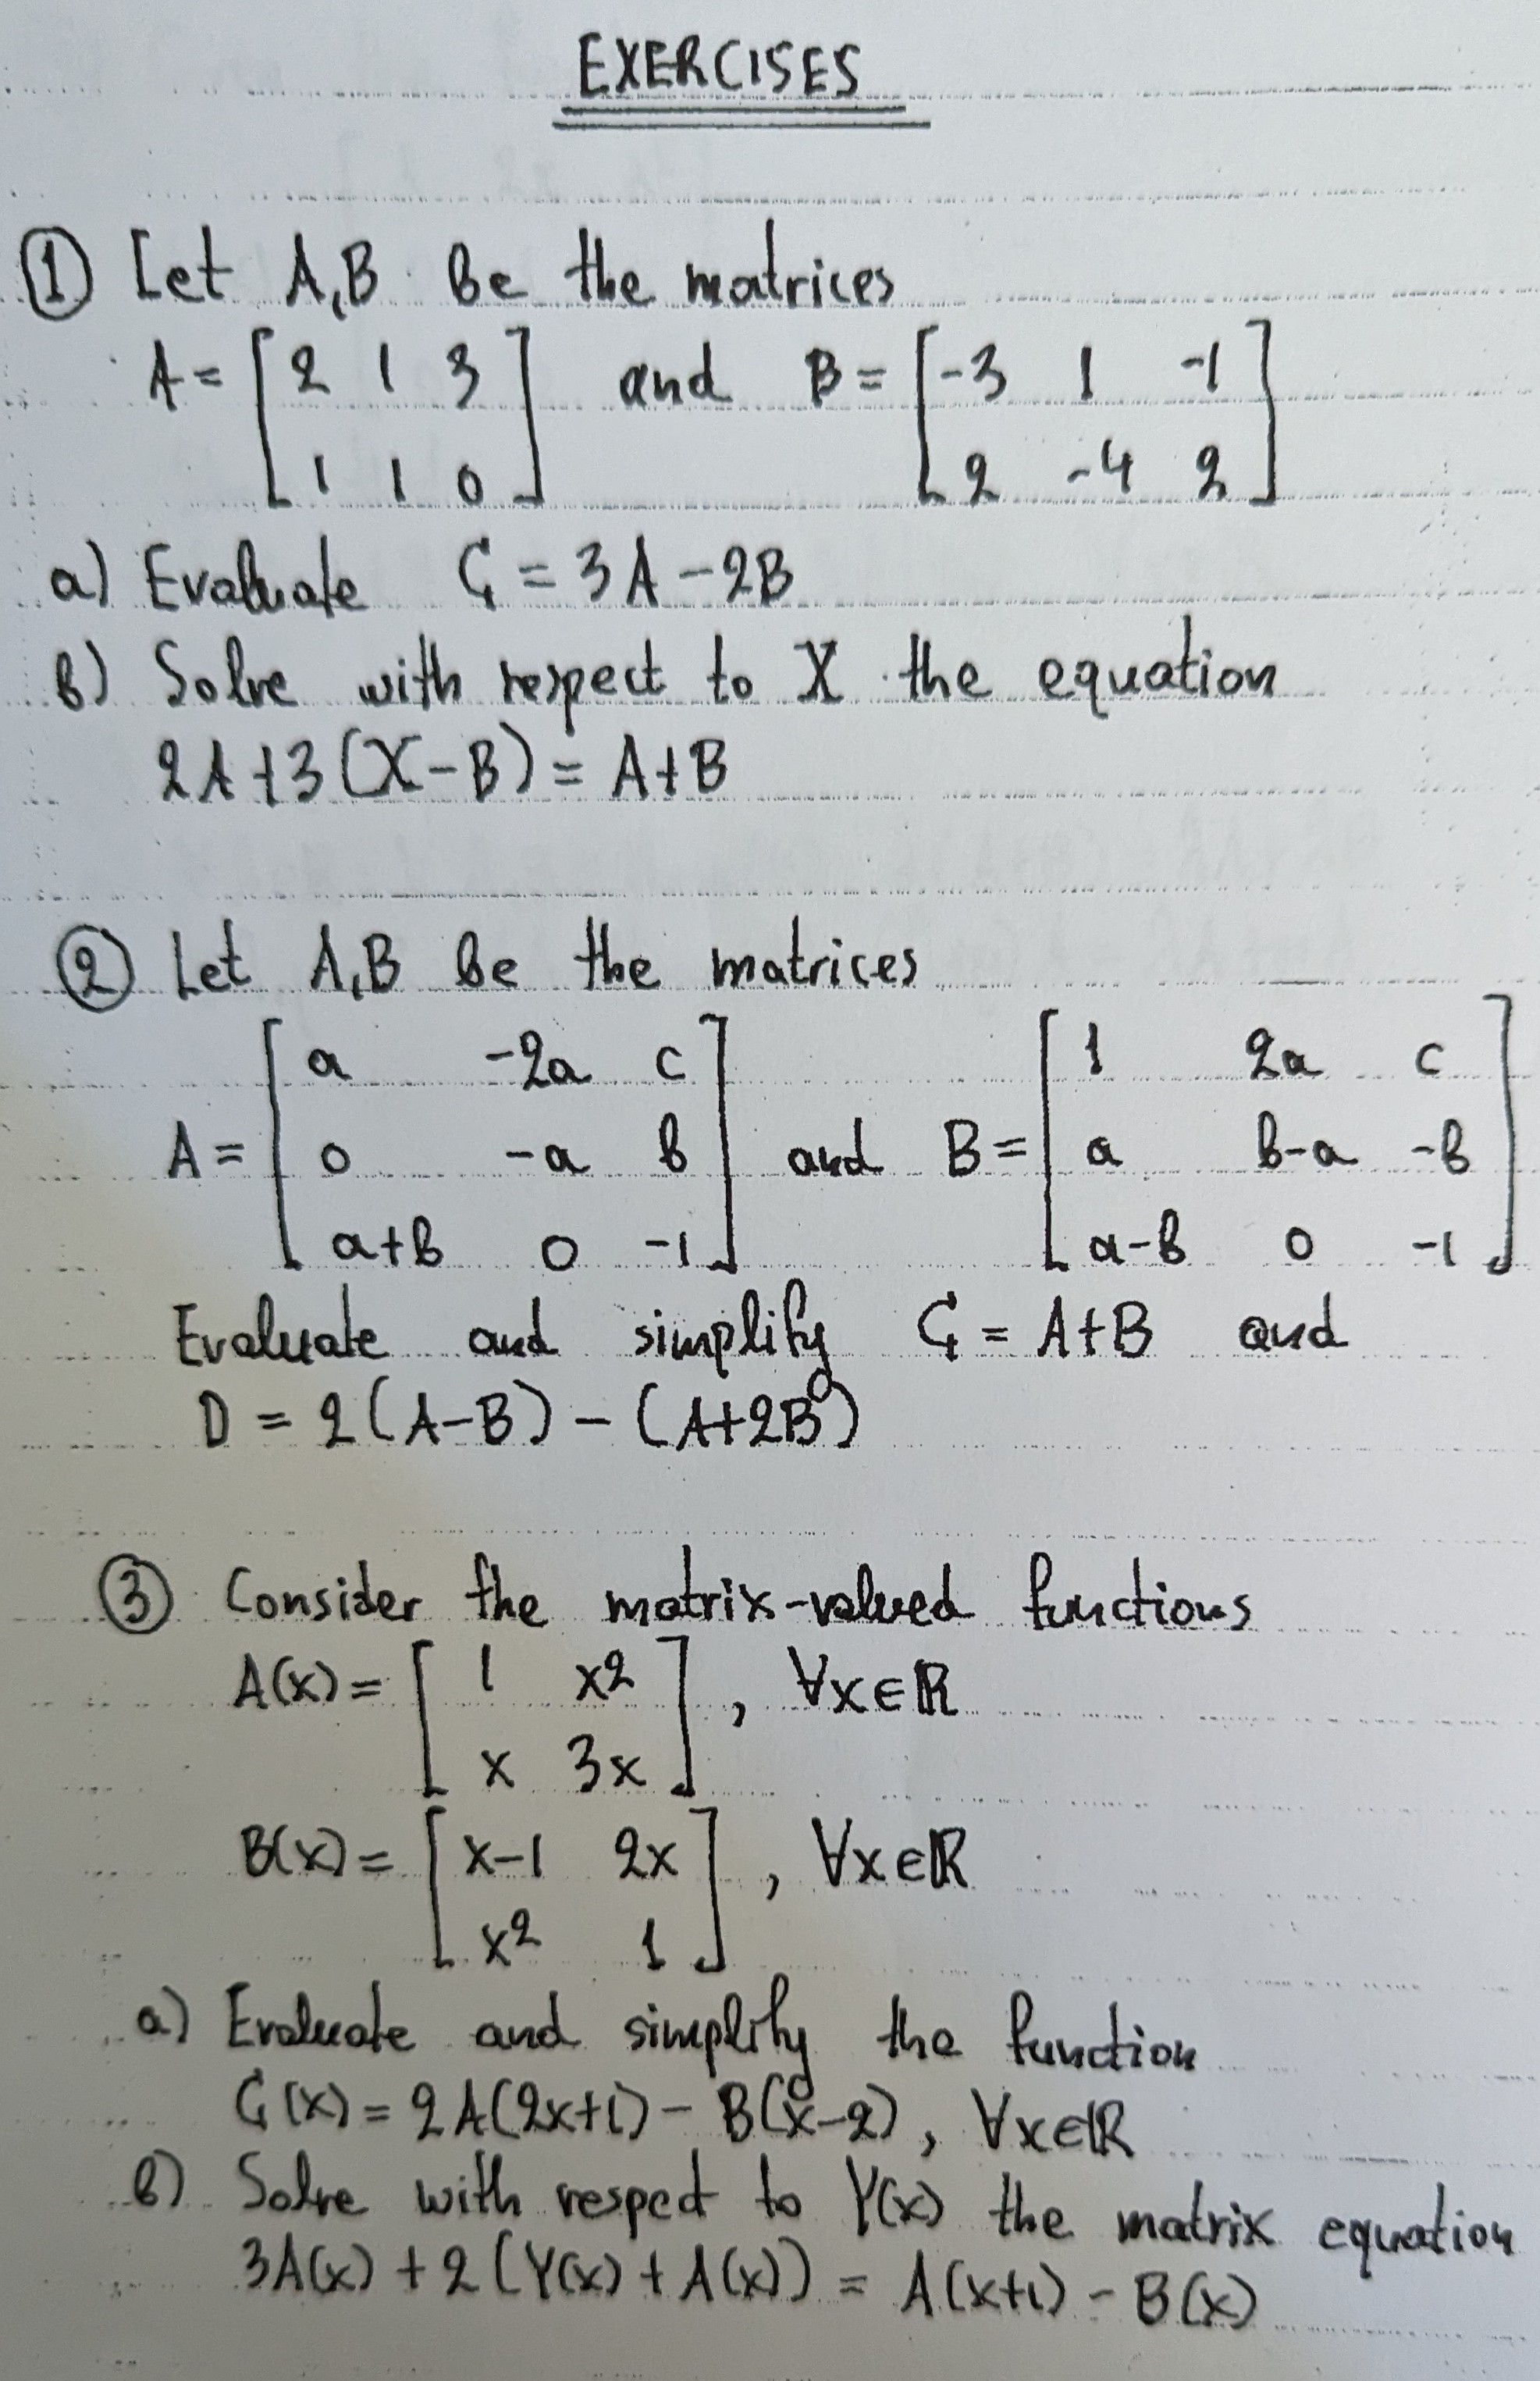 EXERCISES
① Let A,B be the matrices
A = [2 1 3
1 1 0] and B = [-3 1 -1
2 -4 2]
a) Evaluate C = 3A - 2B
b) Solve with respect to X the equation
2A + 3(X - B) = A + B
② Let A,B be the matrices
A = [a -2a c
0 -a b
a+b 0 -1] and B = [1 2a c
a b-a -b
a-b 0 -1]
Evaluate and simplify C = A+B and
D = 2(A-B) - (A+2B)
③ Consider the matrix-valued functions
A(x) = [1 x²
x 3x], ∀x∈ℝ
B(x) = [x-1 2x
x² 1], ∀x∈ℝ
a) Evaluate and simplify the function
C(x) = 2A(2x+1) - B(x-2), ∀x∈ℝ
b) Solve with respect to Y(x) the matrix equation
3A(x) + 2(Y(x) + A(x)) = A(x+1) - B(x)